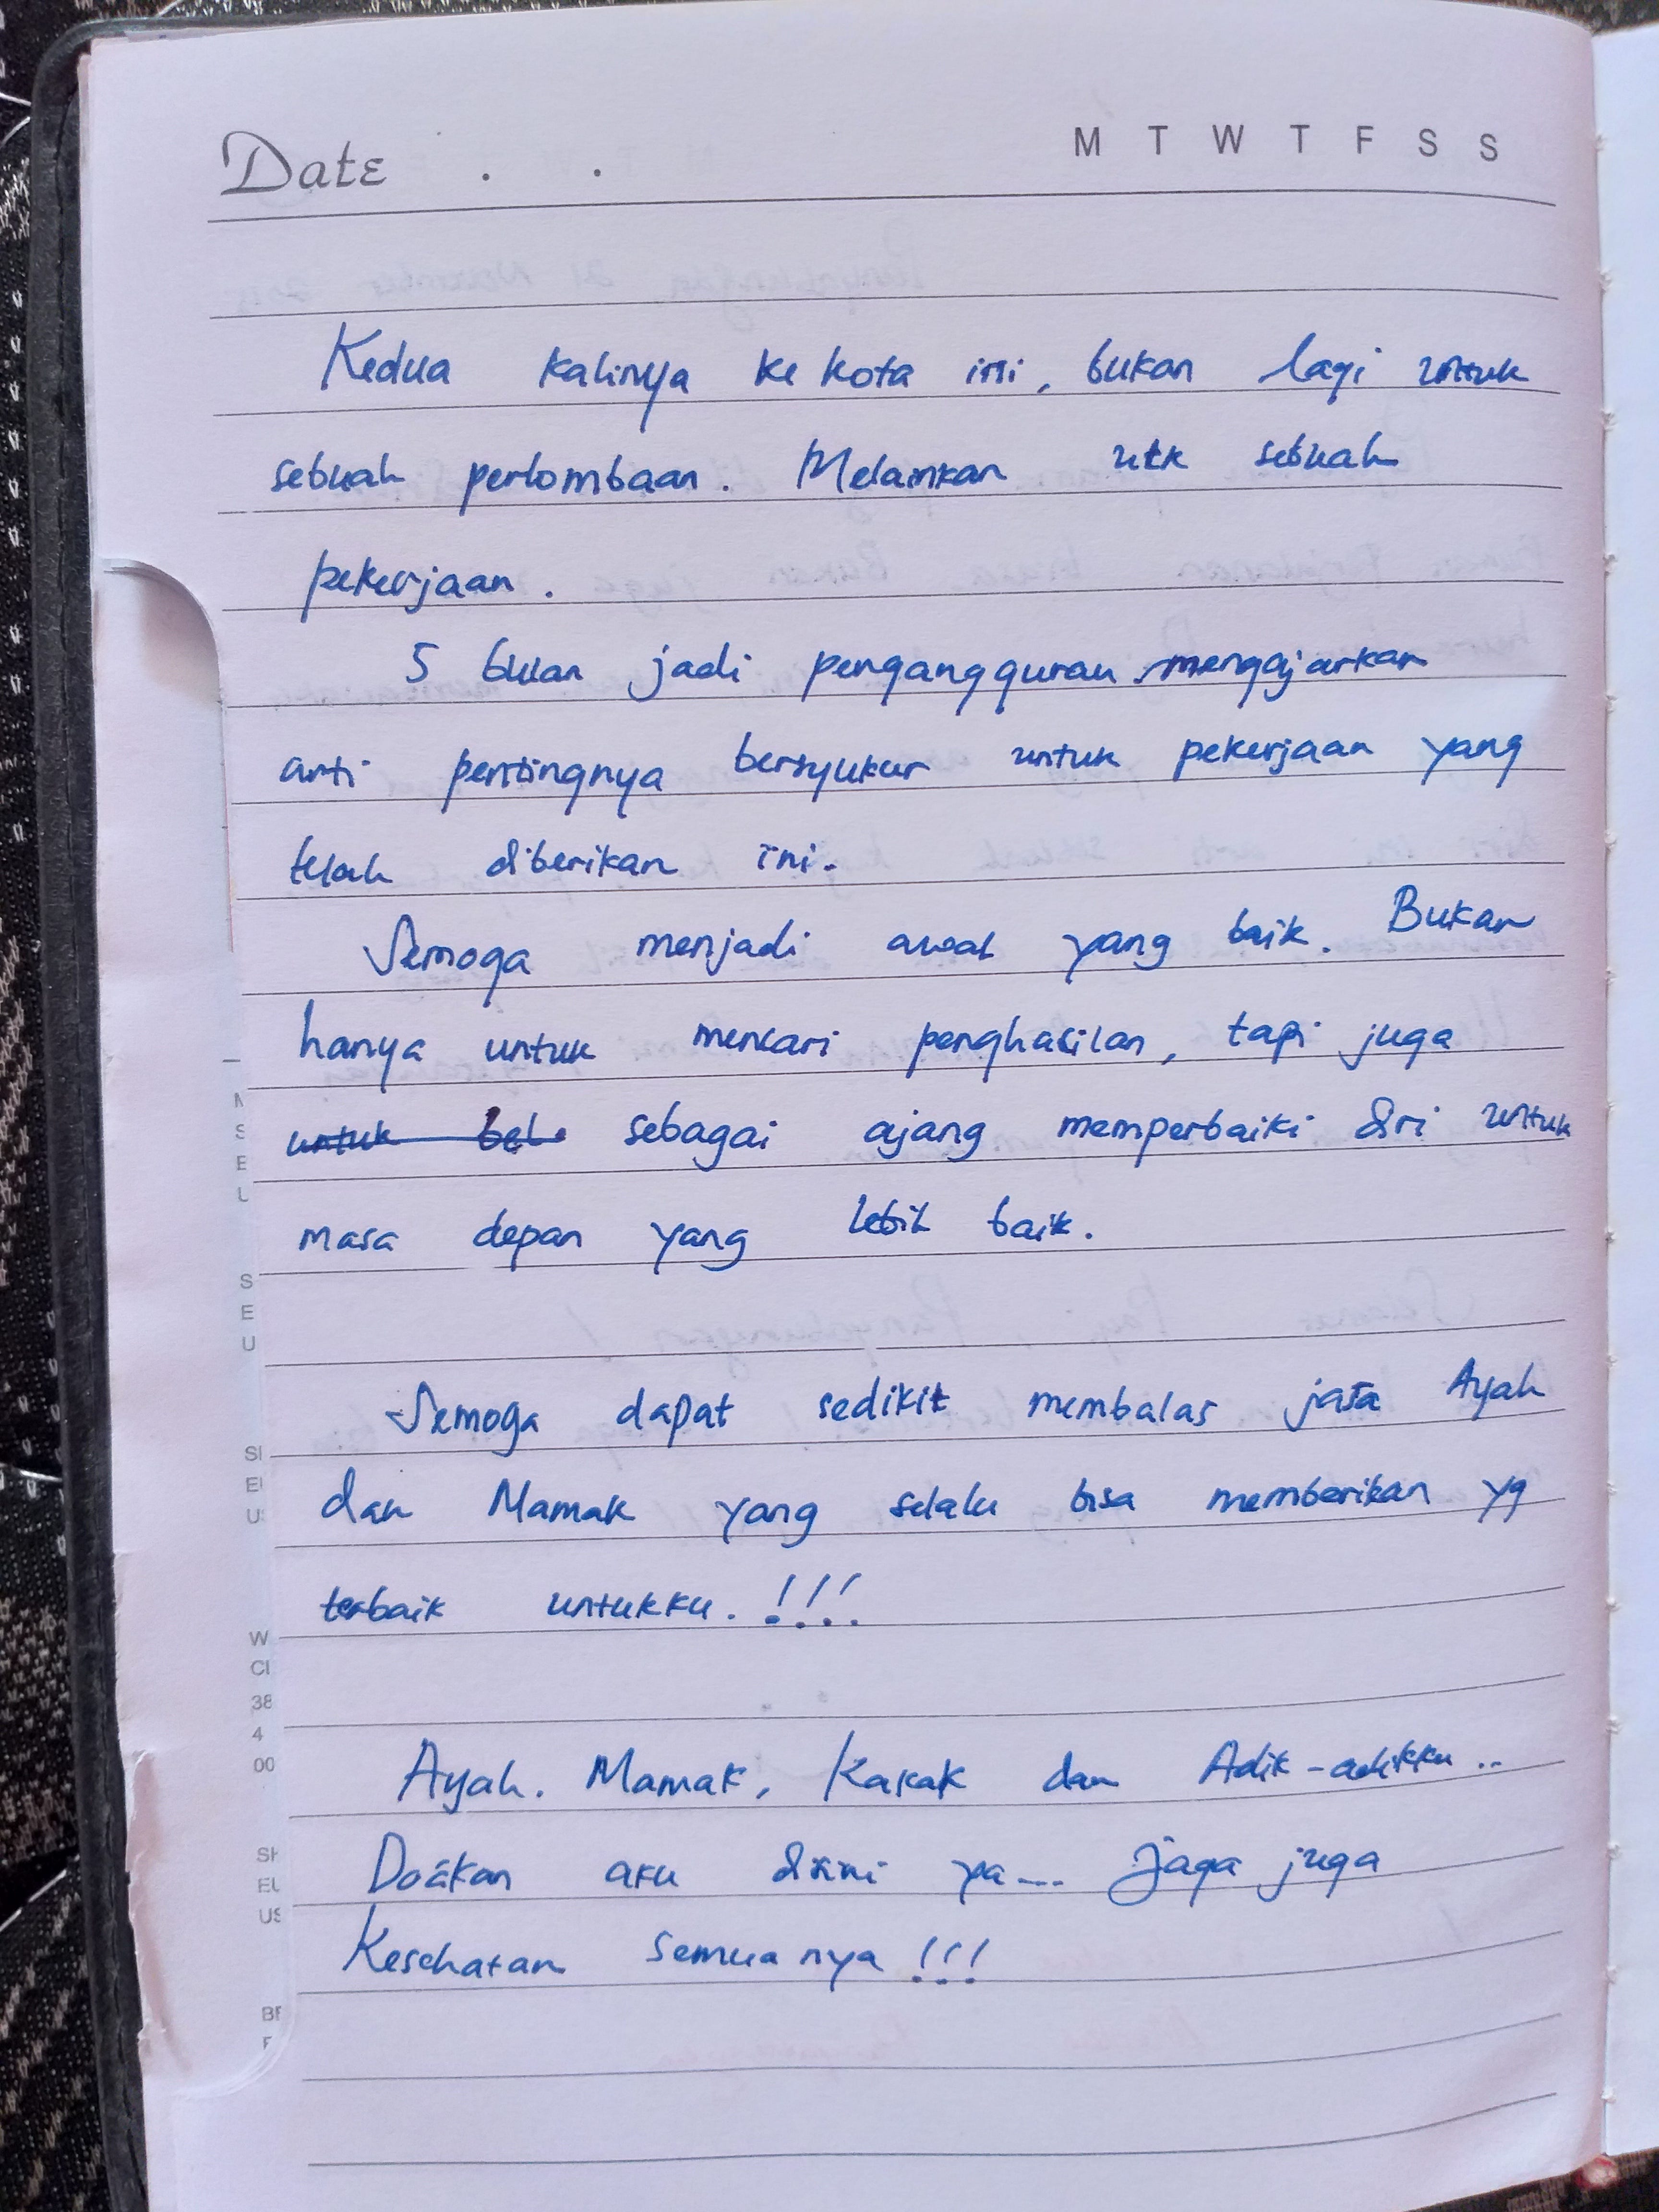 Date . .
M T W T F S S
Kedua kalinya ke kota ini, bukan lagi untuk
sebuah perlombaan. Melainkan utk sebuah
pekerjaan.
5 bulan jadi pengangguran mengajarkan
arti pentingnya bersyukur untuk pekerjaan yang
telah diberikan ini.
Semoga menjadi awal yang baik. Bukan
hanya untuk mencari penghasilan, tapi juga
untuk beb sebagai ajang memperbaiki diri untuk
masa depan yang lebih baik.
Semoga dapat sedikit membalas jasa Ayah
dan Mamak yang selalu bisa memberikan yg
terbaik untukku. !!!
Ayah. Mamak, Kakak dan Adik-adikku ..
Doakan aku disini ya.... Jaga juga
Kesehatan semua nya !!!